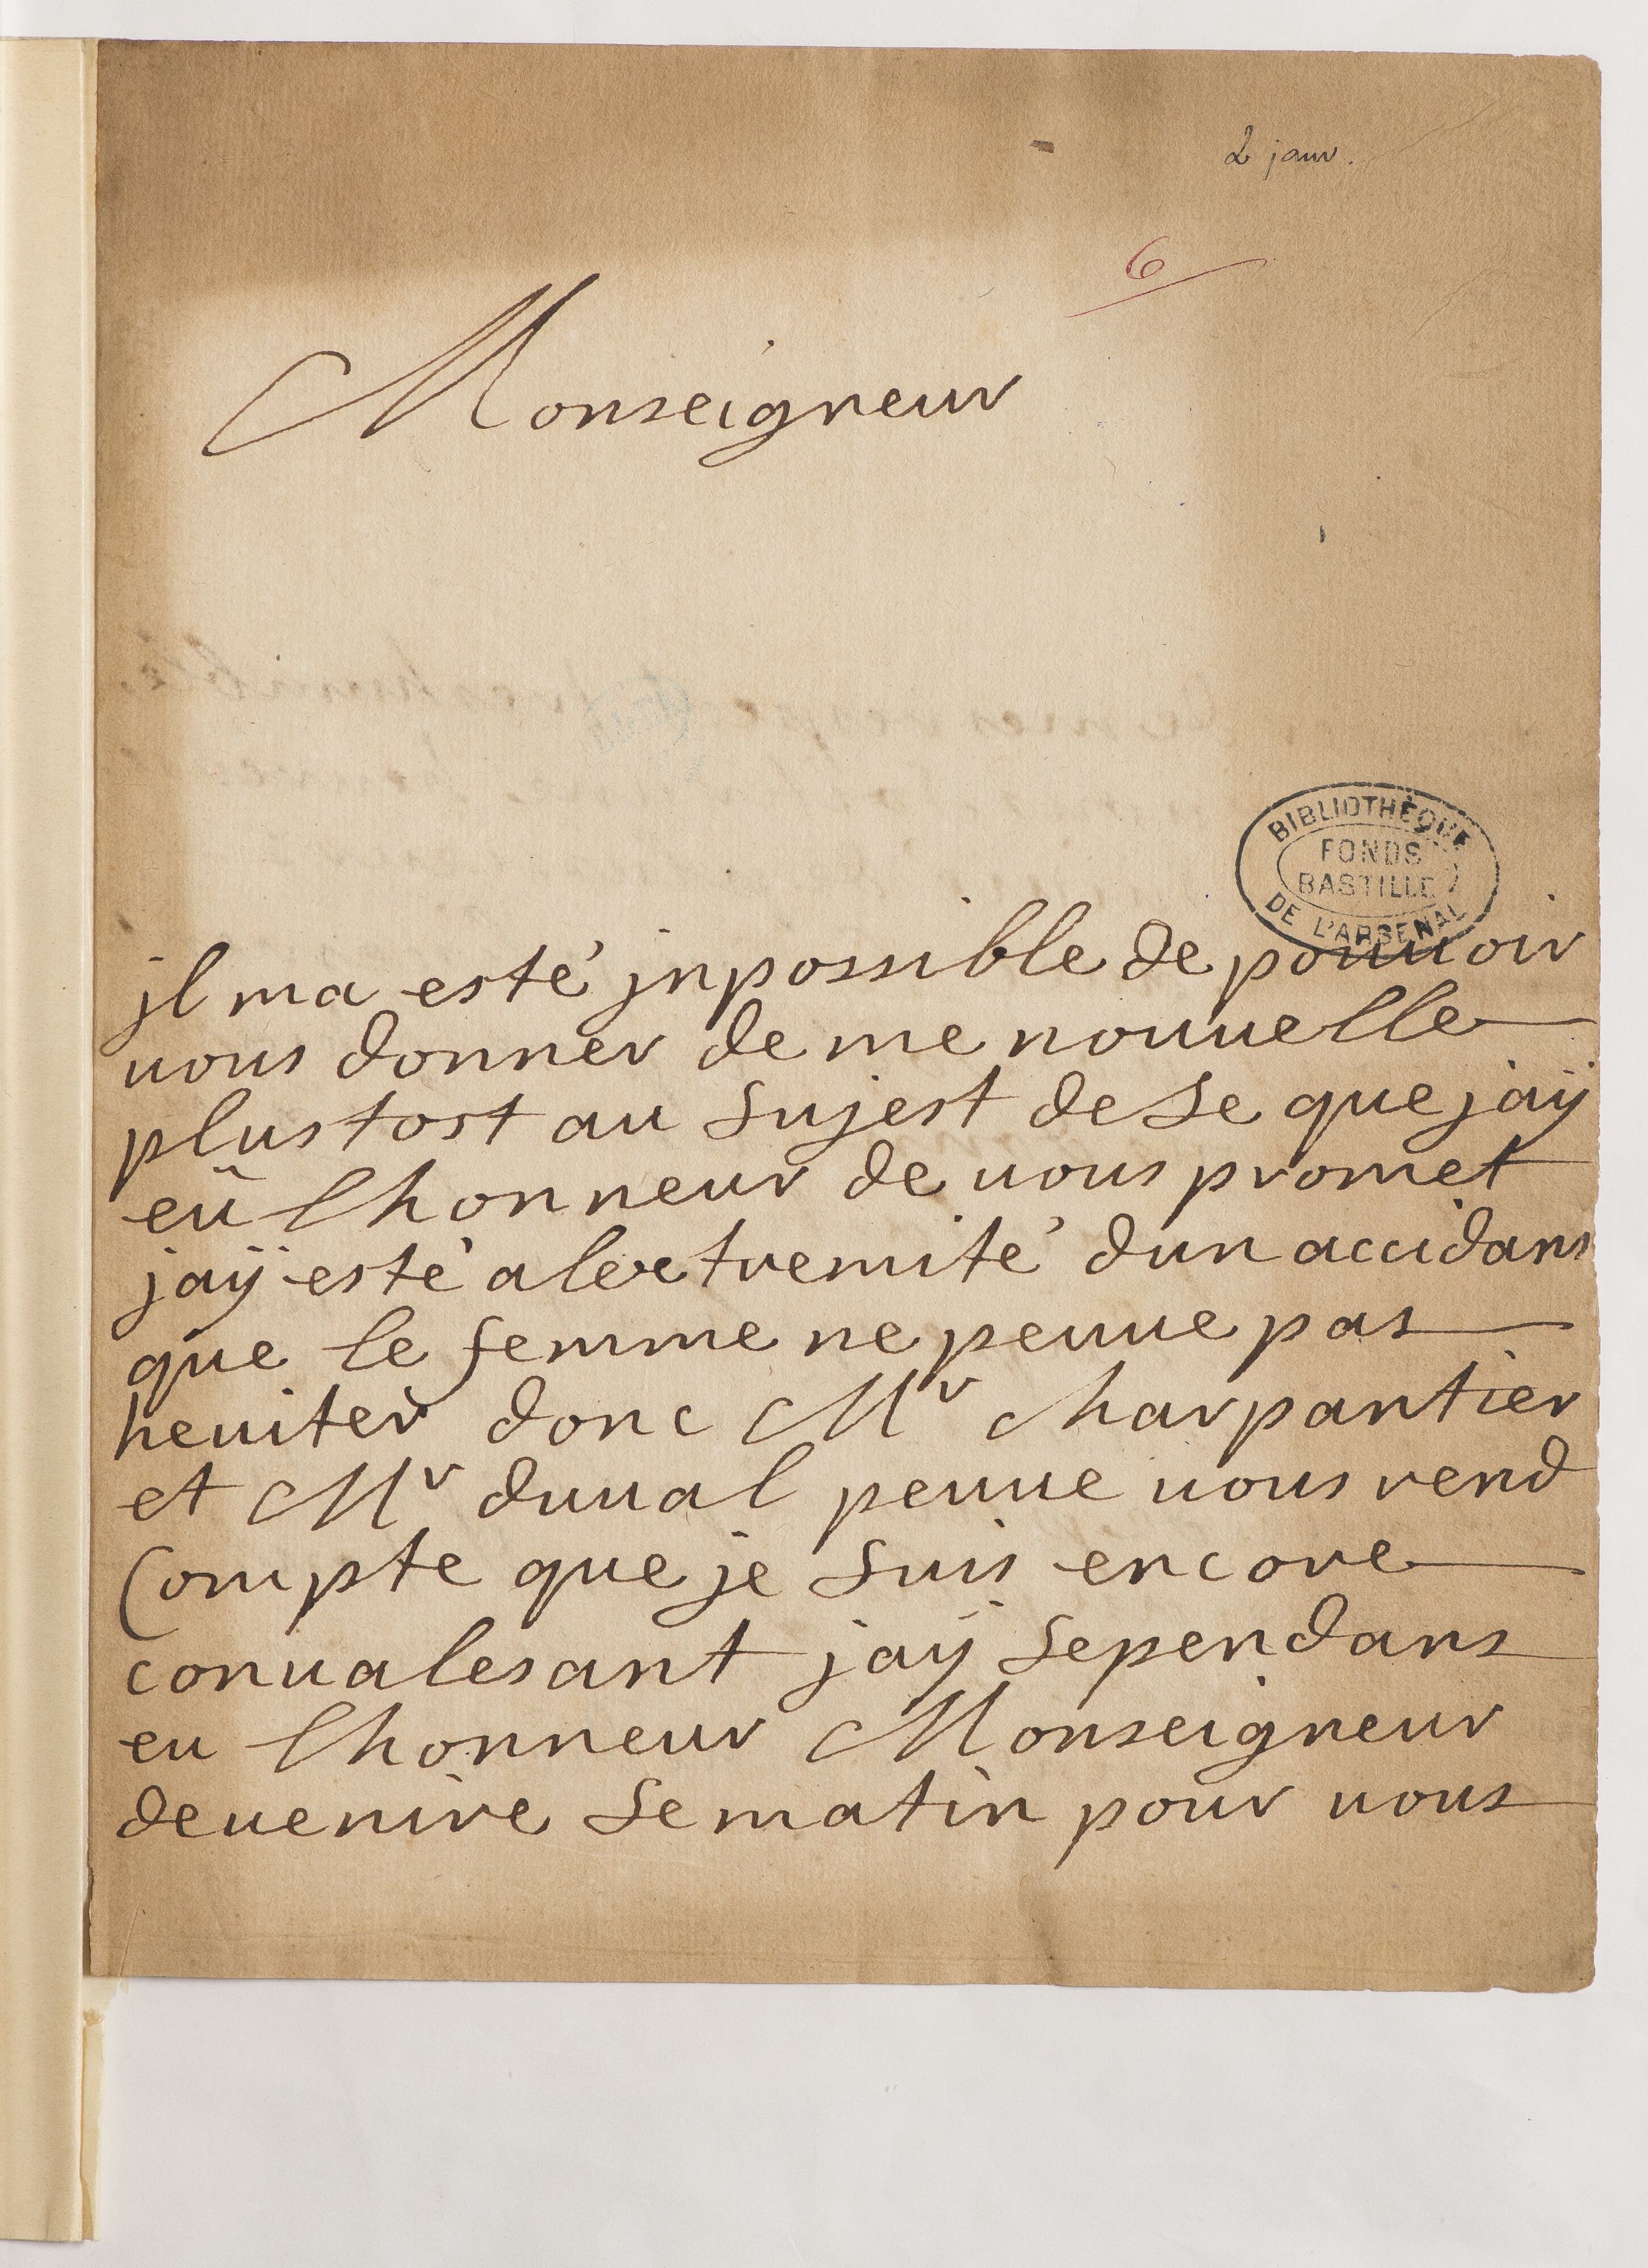 2 janv.
6
Monseigneur
BIBLIOTHÈQUE
FONDS
BASTILLE
DE L'ARSENAL
jl ma esté jnpossible de pouuoir
uous donner de me nouuelle
plus tost au sujest de se que jaÿ
eü lhonneur de uous promet
jaÿ esté alextremité dun accidans
que le femme ne peuue pas
heuiter donc Mr charpantier
et Mr duual peuue uous rend
Compte que je suis encore
conualesant jaÿ sependans
eu lhonneur Monseigneur
deuenire se matin pour uous